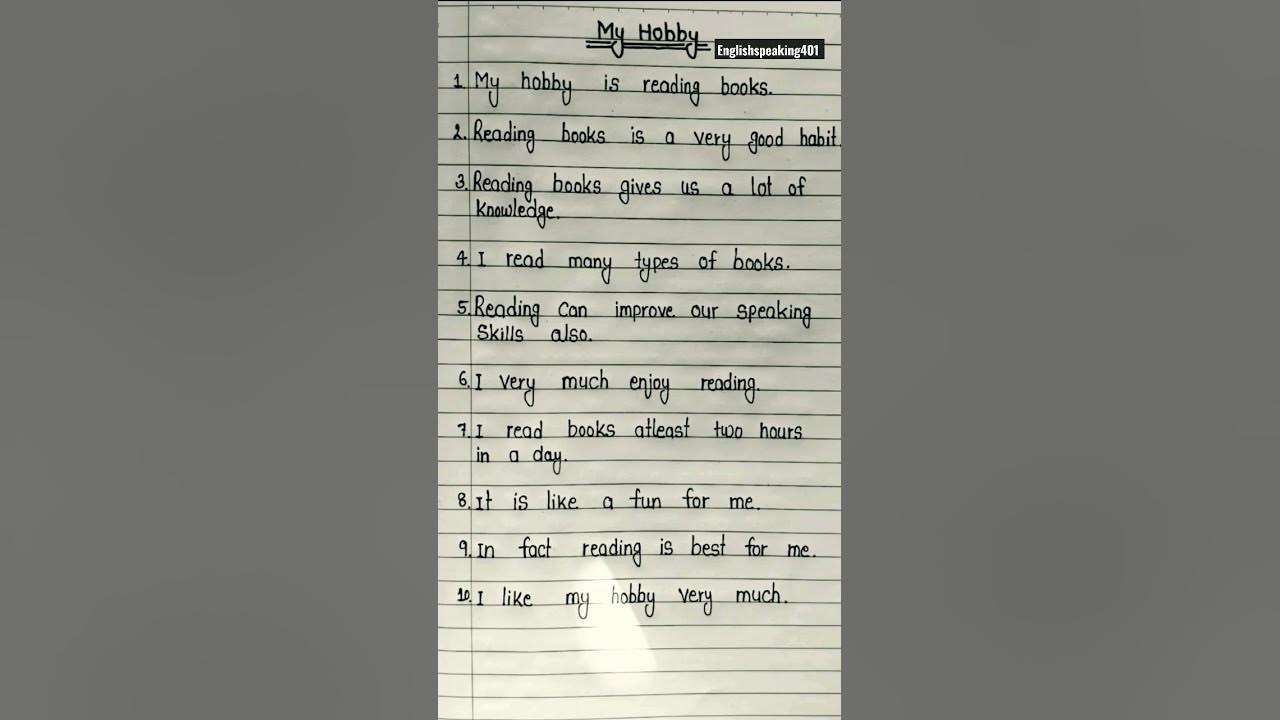 My Hobby
Englishspeaking401
1. My hobby is reading books.
2. Reading books is a very good habit.
3. Reading books gives us a lot of
knowledge.
4. I read many types of books.
5. Reading can improve our speaking
skills also.
6. I very much enjoy reading.
7. I read books atleast two hours
in a day.
8. It is like a fun for me.
9. In fact reading is best for me.
10. I like my hobby very much.